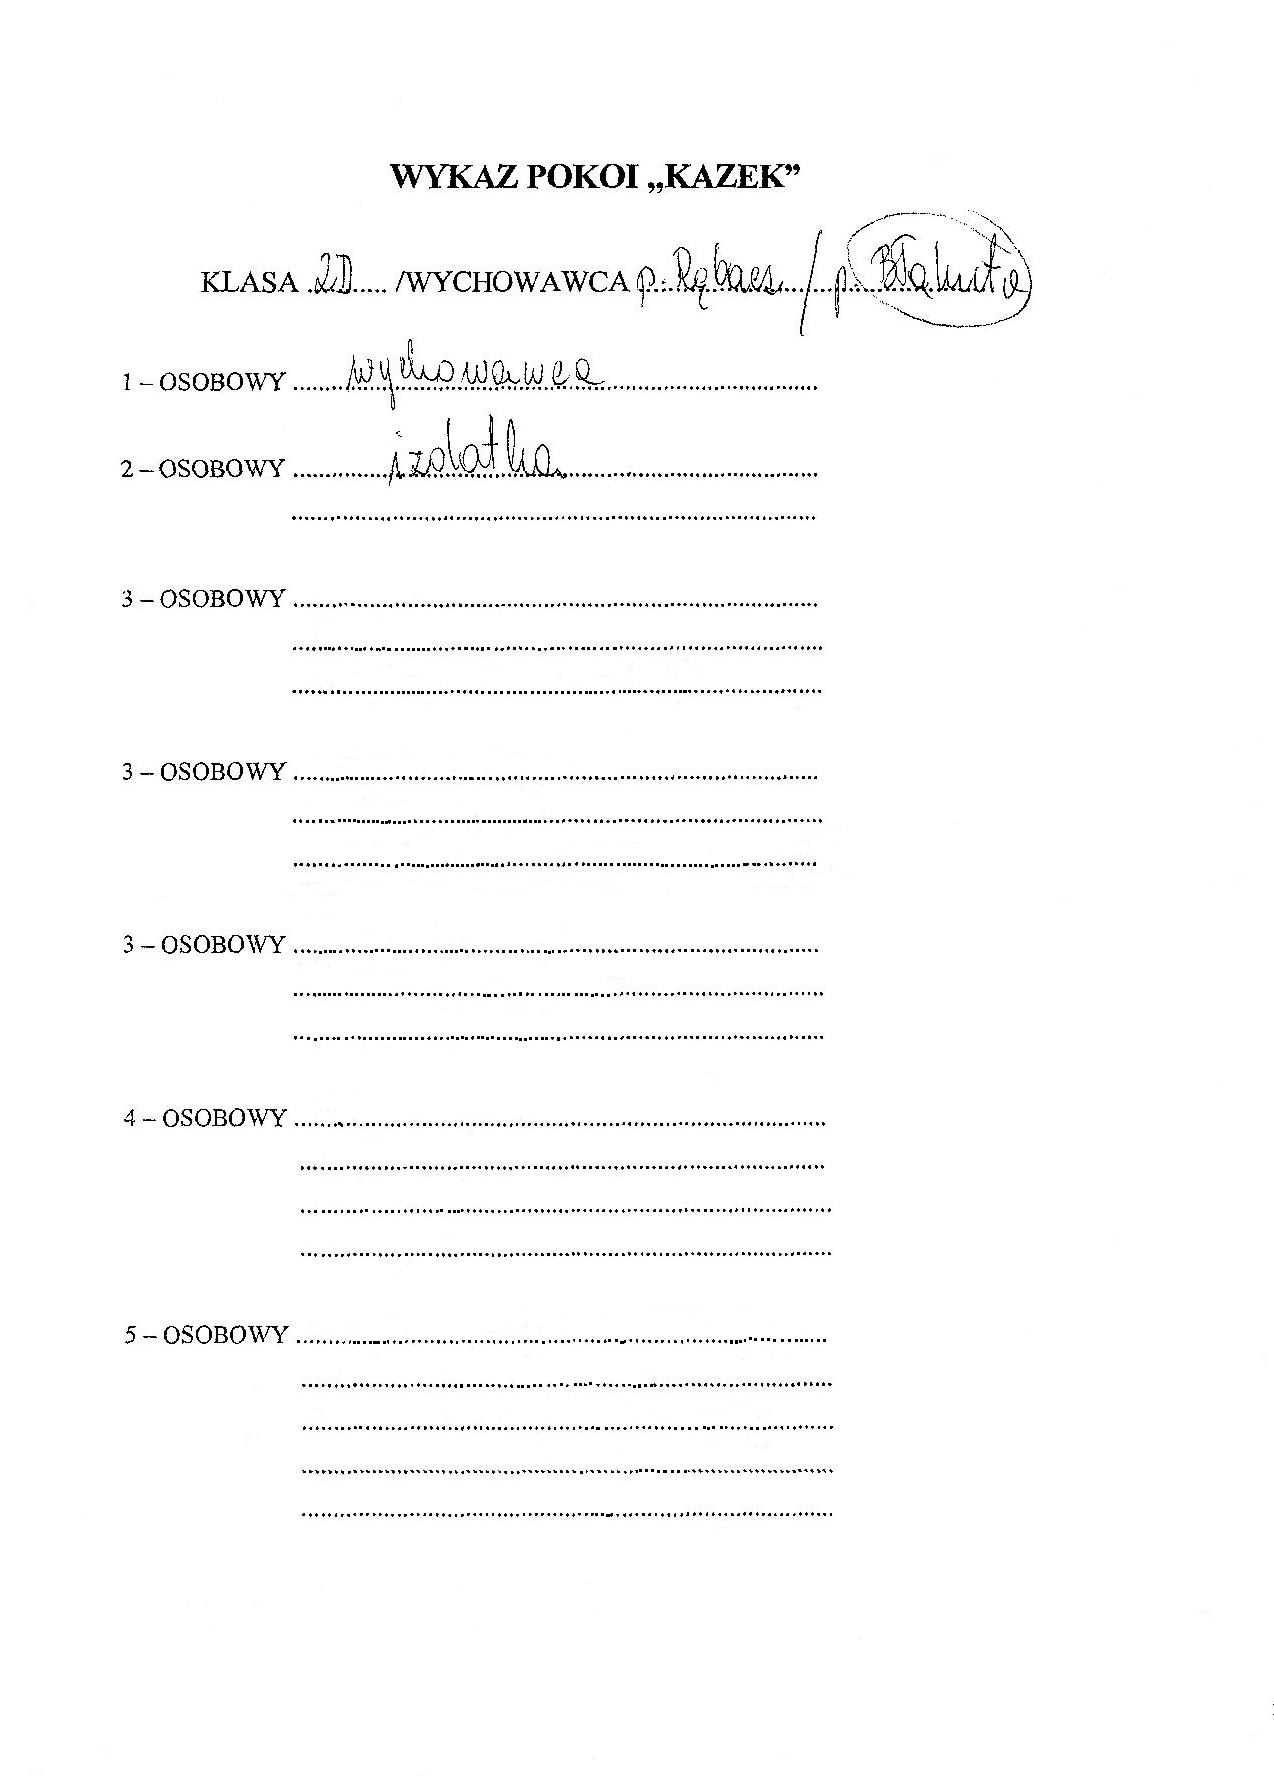 WYKAZ POKOI „KAZEK”
KLASA .2D..... /WYCHOWAWCA p. / p.
1 – OSOBOWY ........wychowawca................................
2 – OSOBOWY ..............izolatka........................................
................................................................................
3 – OSOBOWY ................................................................................
................................................................................
................................................................................
3 – OSOBOWY ................................................................................
................................................................................
................................................................................
3 – OSOBOWY ................................................................................
................................................................................
................................................................................
4 – OSOBOWY ................................................................................
................................................................................
................................................................................
................................................................................
5 – OSOBOWY ................................................................................
................................................................................
................................................................................
................................................................................
................................................................................